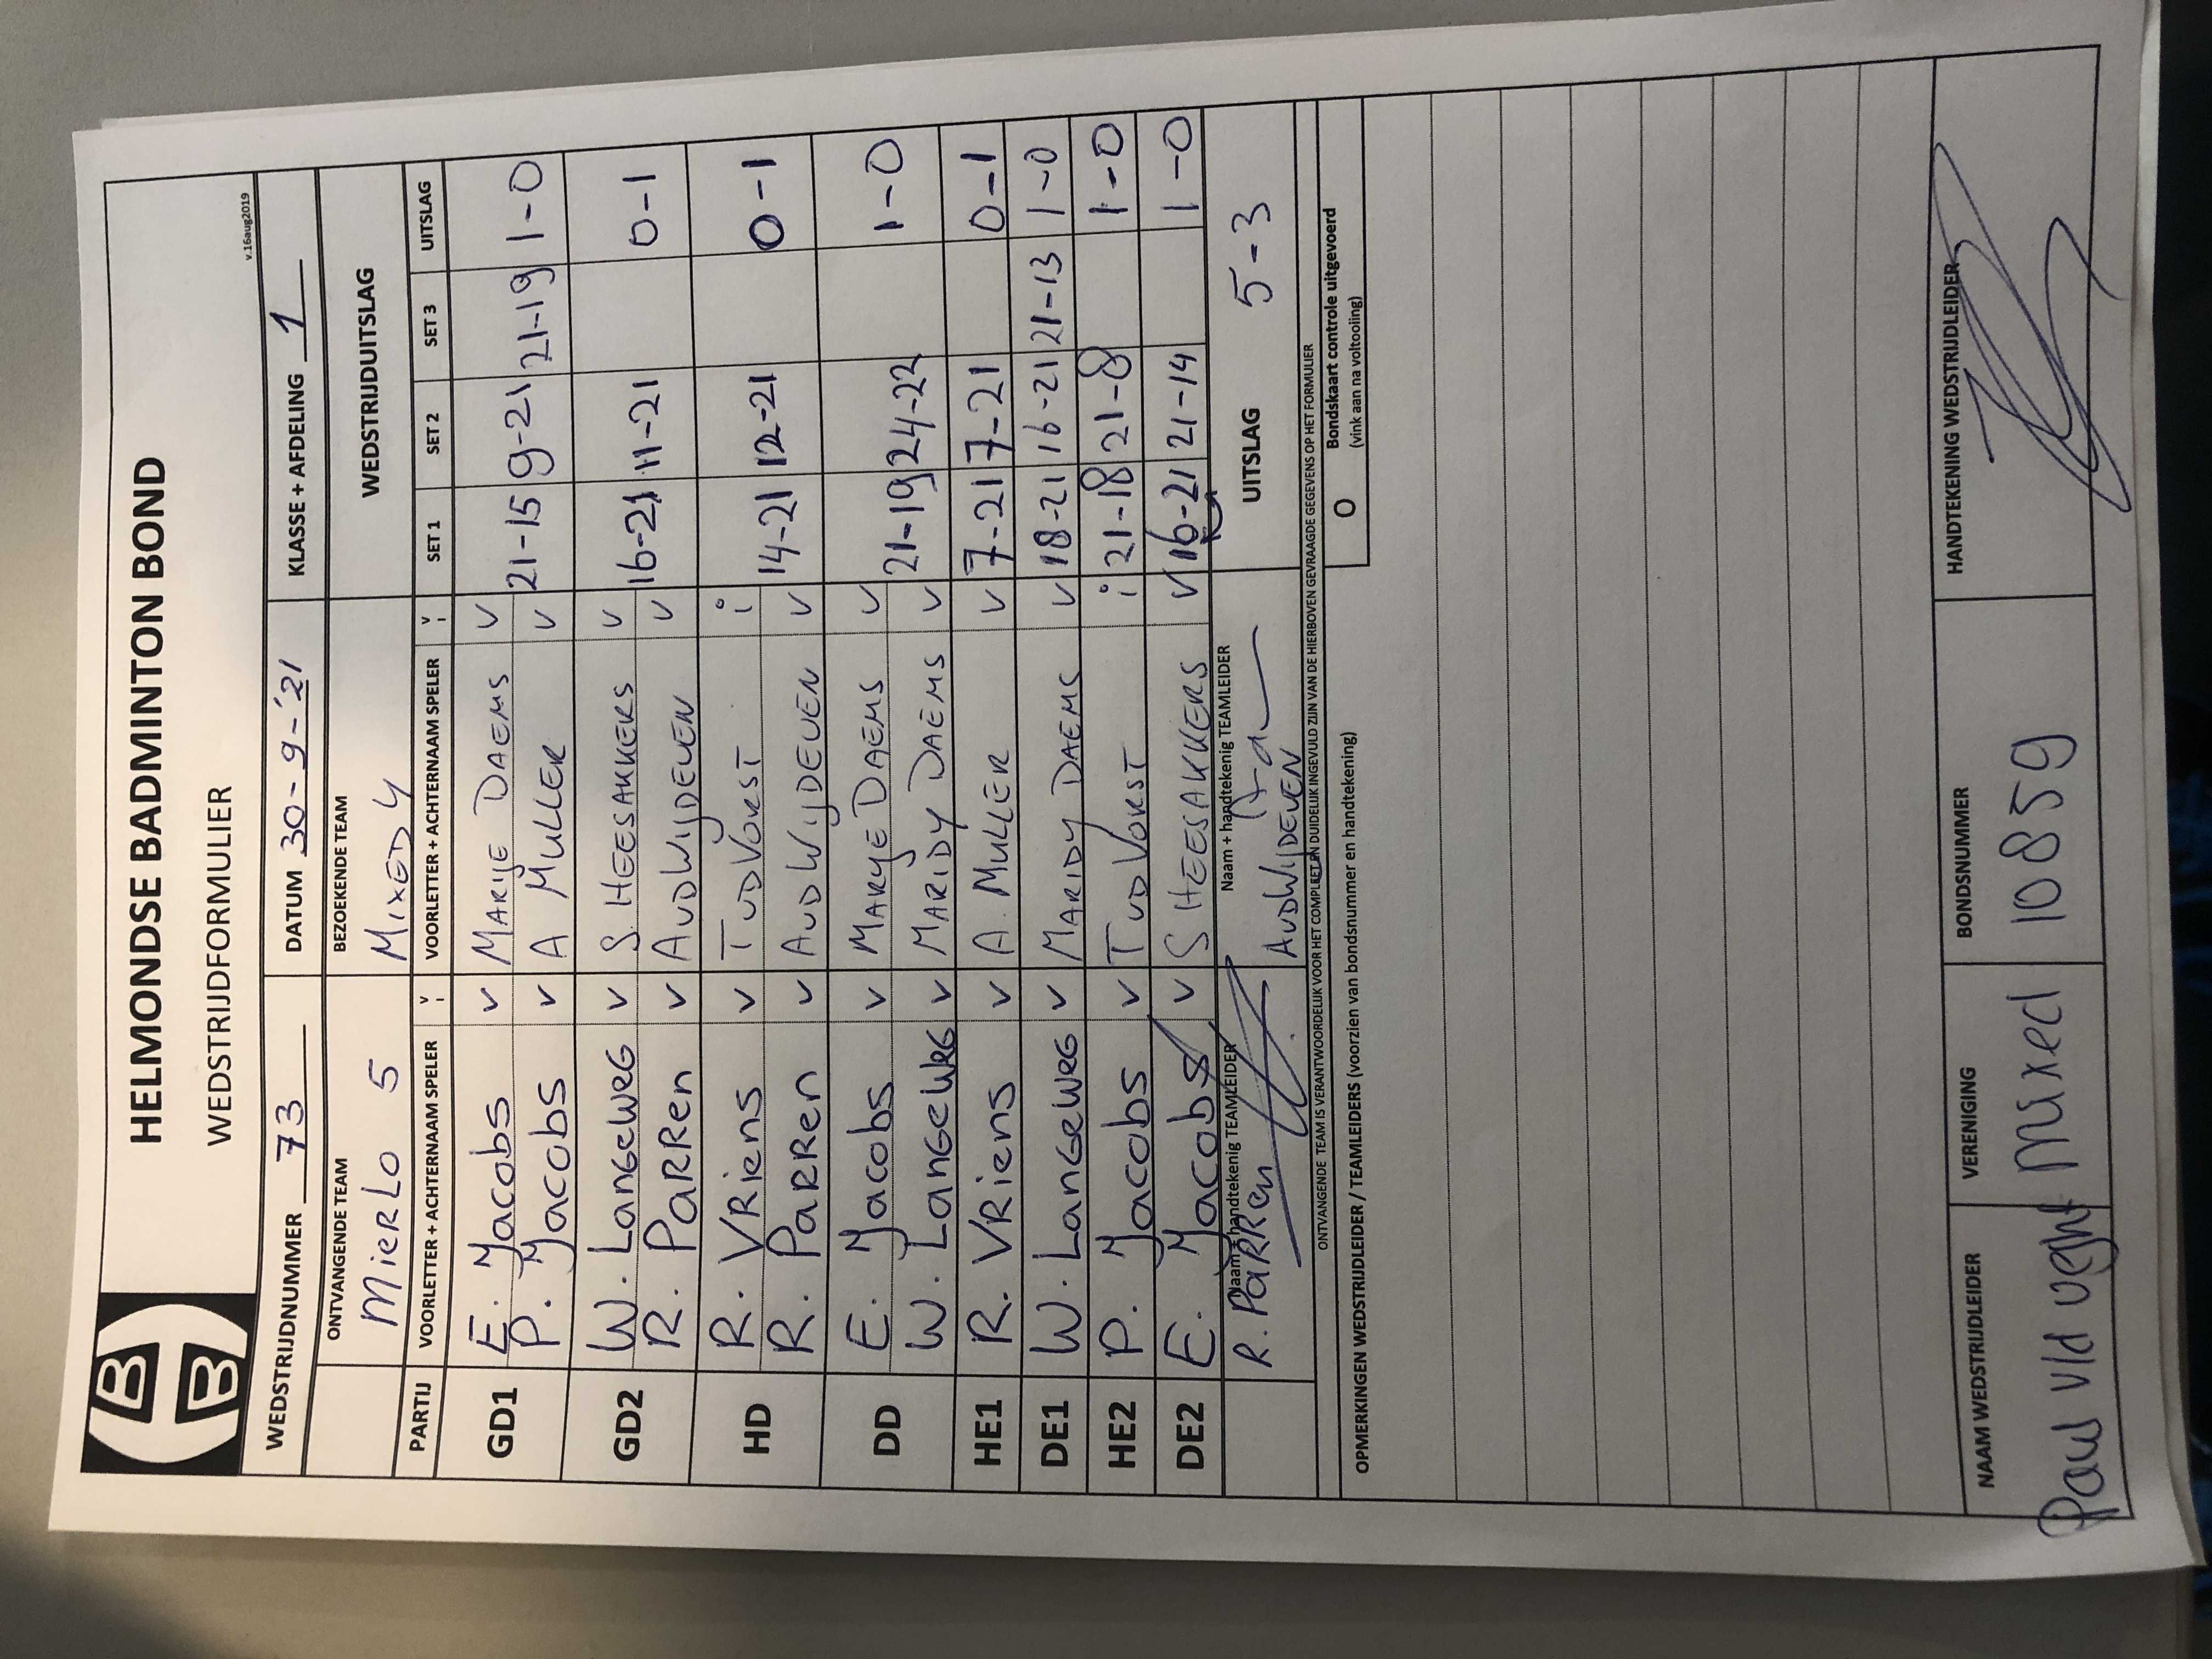 HELMONDSE BADMINTON BOND
WEDSTRIJDFORMULIER
v.16aug2019
WEDSTRIJDNUMMER 73 DATUM 30-9-'21 KLASSE + AFDELING 1
ONTVANGENDE TEAM BEZOEKENDE TEAM WEDSTRIJDUITSLAG
MierLo 5 MIXED 4
PARTIJ VOORLETTER + ACHTERNAAM SPELER v i VOORLETTER + ACHTERNAAM SPELER v i SET 1 SET 2 SET 3 UITSLAG
GD1 E. Jacobs v MARIJE DAEMS v
P. Jacobs v A MULLER v 21-15 9-21 21-19 1-0
GD2 W. LanGeweG v S. HEESAKKERS v
R. PaRRen v AvdWIJDEVEN v 16-21 11-21 0-1
HD R. VRiens v TvdVORST i
R. PaRRen v AvdWIJDEVEN v 14-21 12-21 0-1
DD E. Jacobs v MARYE DAEMS v
W. LanGeWeG v MARIDY DAEMS v 21-19 24-22 1-0
HE1 R. VRiens v A. MULLER v 7-21 7-21 0-1
DE1 W. LanGeweG v MARIDY DAEMS v 18-21 16-21 21-13 1-0
HE2 P. Jacobs v TvdVORST i 21-18 21-8 1-0
DE2 E. Jacobs v S HEESAKKERS v 16-21 21-14 1-0
Naam + handtekenig TEAMLEIDER Naam + handtekenig TEAMLEIDER UITSLAG 5-3
R. PaRRen AvdWIJDEVEN
ONTVANGENDE TEAM IS VERANTWOORDELIJK VOOR HET COMPLEET EN DUIDELIJK INGEVULD ZIJN VAN DE HIERBOVEN GEVRAAGDE GEGEVENS OP HET FORMULIER
OPMERKINGEN WEDSTRIJDLEIDER / TEAMLEIDERS (voorzien van bondsnummer en handtekening) O Bondskaart controle uitgevoerd
(vink aan na voltooling)
NAAM WEDSTRIJDLEIDER VERENIGING BONDSNUMMER HANDTEKENING WEDSTRIJDLEIDER
Paul v/d veght Mixed 10859